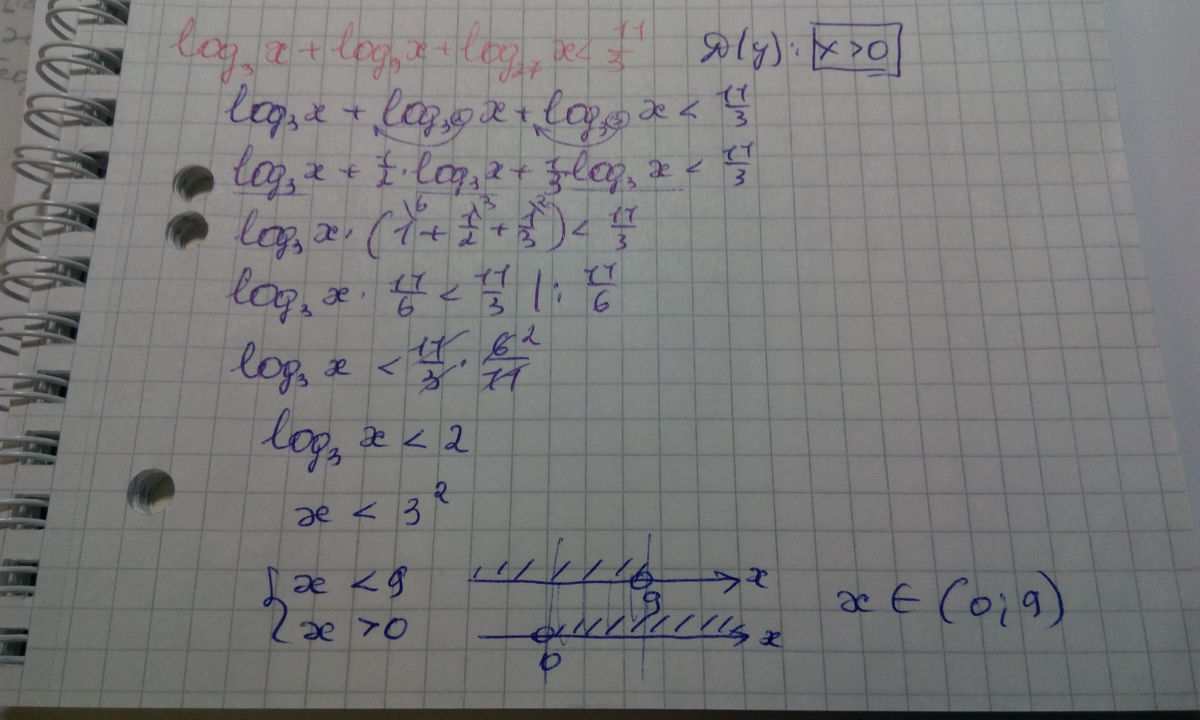 log₃ x + log₉ x + log₂₇ x < 11/3 D(y): x > 0
log₃ x + log₃² x + log₃³ x < 11/3
log₃ x + 1/2 · log₃ x + 1/3 · log₃ x < 11/3
log₃ x · (1\⁶ + 1/2\³ + 1/3\²) < 11/3
log₃ x · 11/6 < 11/3 | : 11/6
log₃ x < 11/3 · 6²/11
log₃ x < 2
x < 3²
{ x < 9
x > 0
x
9
x
0
x ∈ (0; 9)